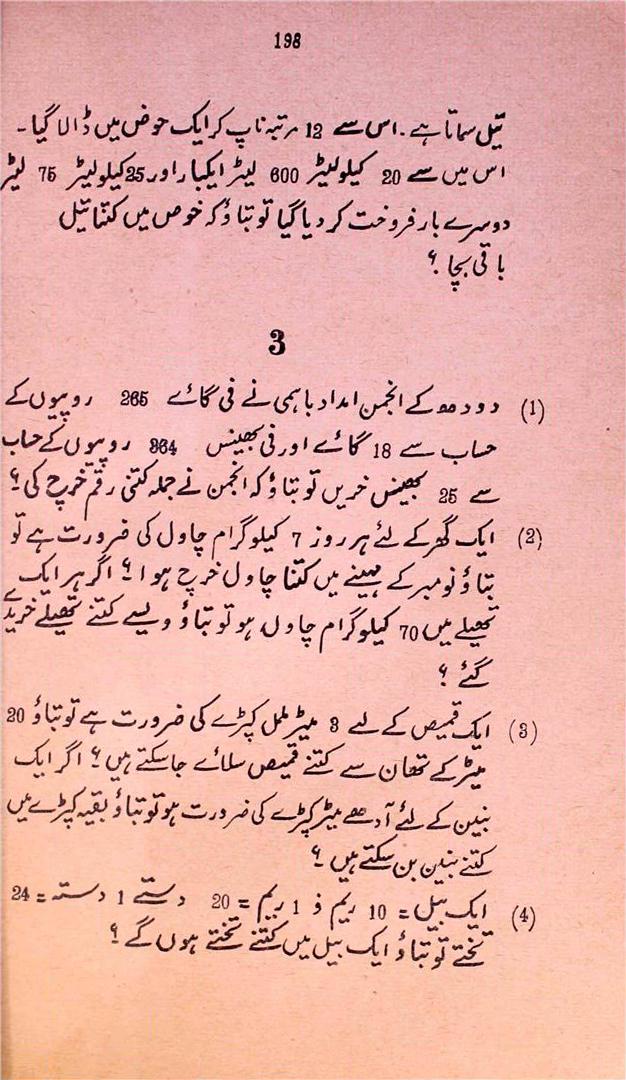 198
تیل سماتا ہے ۔ اس سے 12 مرتبہ ناپ کر ایک حوض میں ڈالا گیا ۔
اس میں سے 20 کیلولیٹر 600 لیٹر ایکبار اور 25 کیلولیٹر 75 لیٹر
دوسرے بار فروخت کر دیا گیا تو بتاؤ کہ خوص میں کتنا تیل
باقی بچا ؟
3
(1) دودھ کے انجمن امداد باہمی نے فی گائے 265 روپیوں کے
حساب سے 18 گائے اور فی بھینس 364 روپیوں کے حساب
سے 25 بھینس خریں تو بتاؤ کہ انجمن نے جملہ کتنی رقم خرچ کی ؟
(2) ایک گھر کے لئے ہر روز 7 کیلوگرام چاول کی ضرورت ہے تو
بتاؤ نومبر کے مہینے میں کتنا چاول خرچ ہوا ؟ اگر ہر ایک
تھیلے میں 70 کیلوگرام چاول ہو تو بتاؤ ویسے کتنے تھیلے خریدے
گئے ؟
(3) ایک قمیص کے لیے 3 میٹر ململ کپڑے کی ضرورت ہے تو بتاؤ 20
میٹر کے تھان سے کتنے قمیص سلائے جاسکتے ہیں ؟ اگر ایک
بنین کے لئے آدھے میٹر کپڑے کی ضرورت ہو تو بتاؤ بقیہ کپڑے میں
کتنے بنین بن سکتے ہیں ؟
(4) ایک بیل = 10 ریم و 1 ریم = 20 دستے 1 دستہ = 24
تختے تو بتاؤ ایک بیل میں کتنے تختے ہوں گے ؟